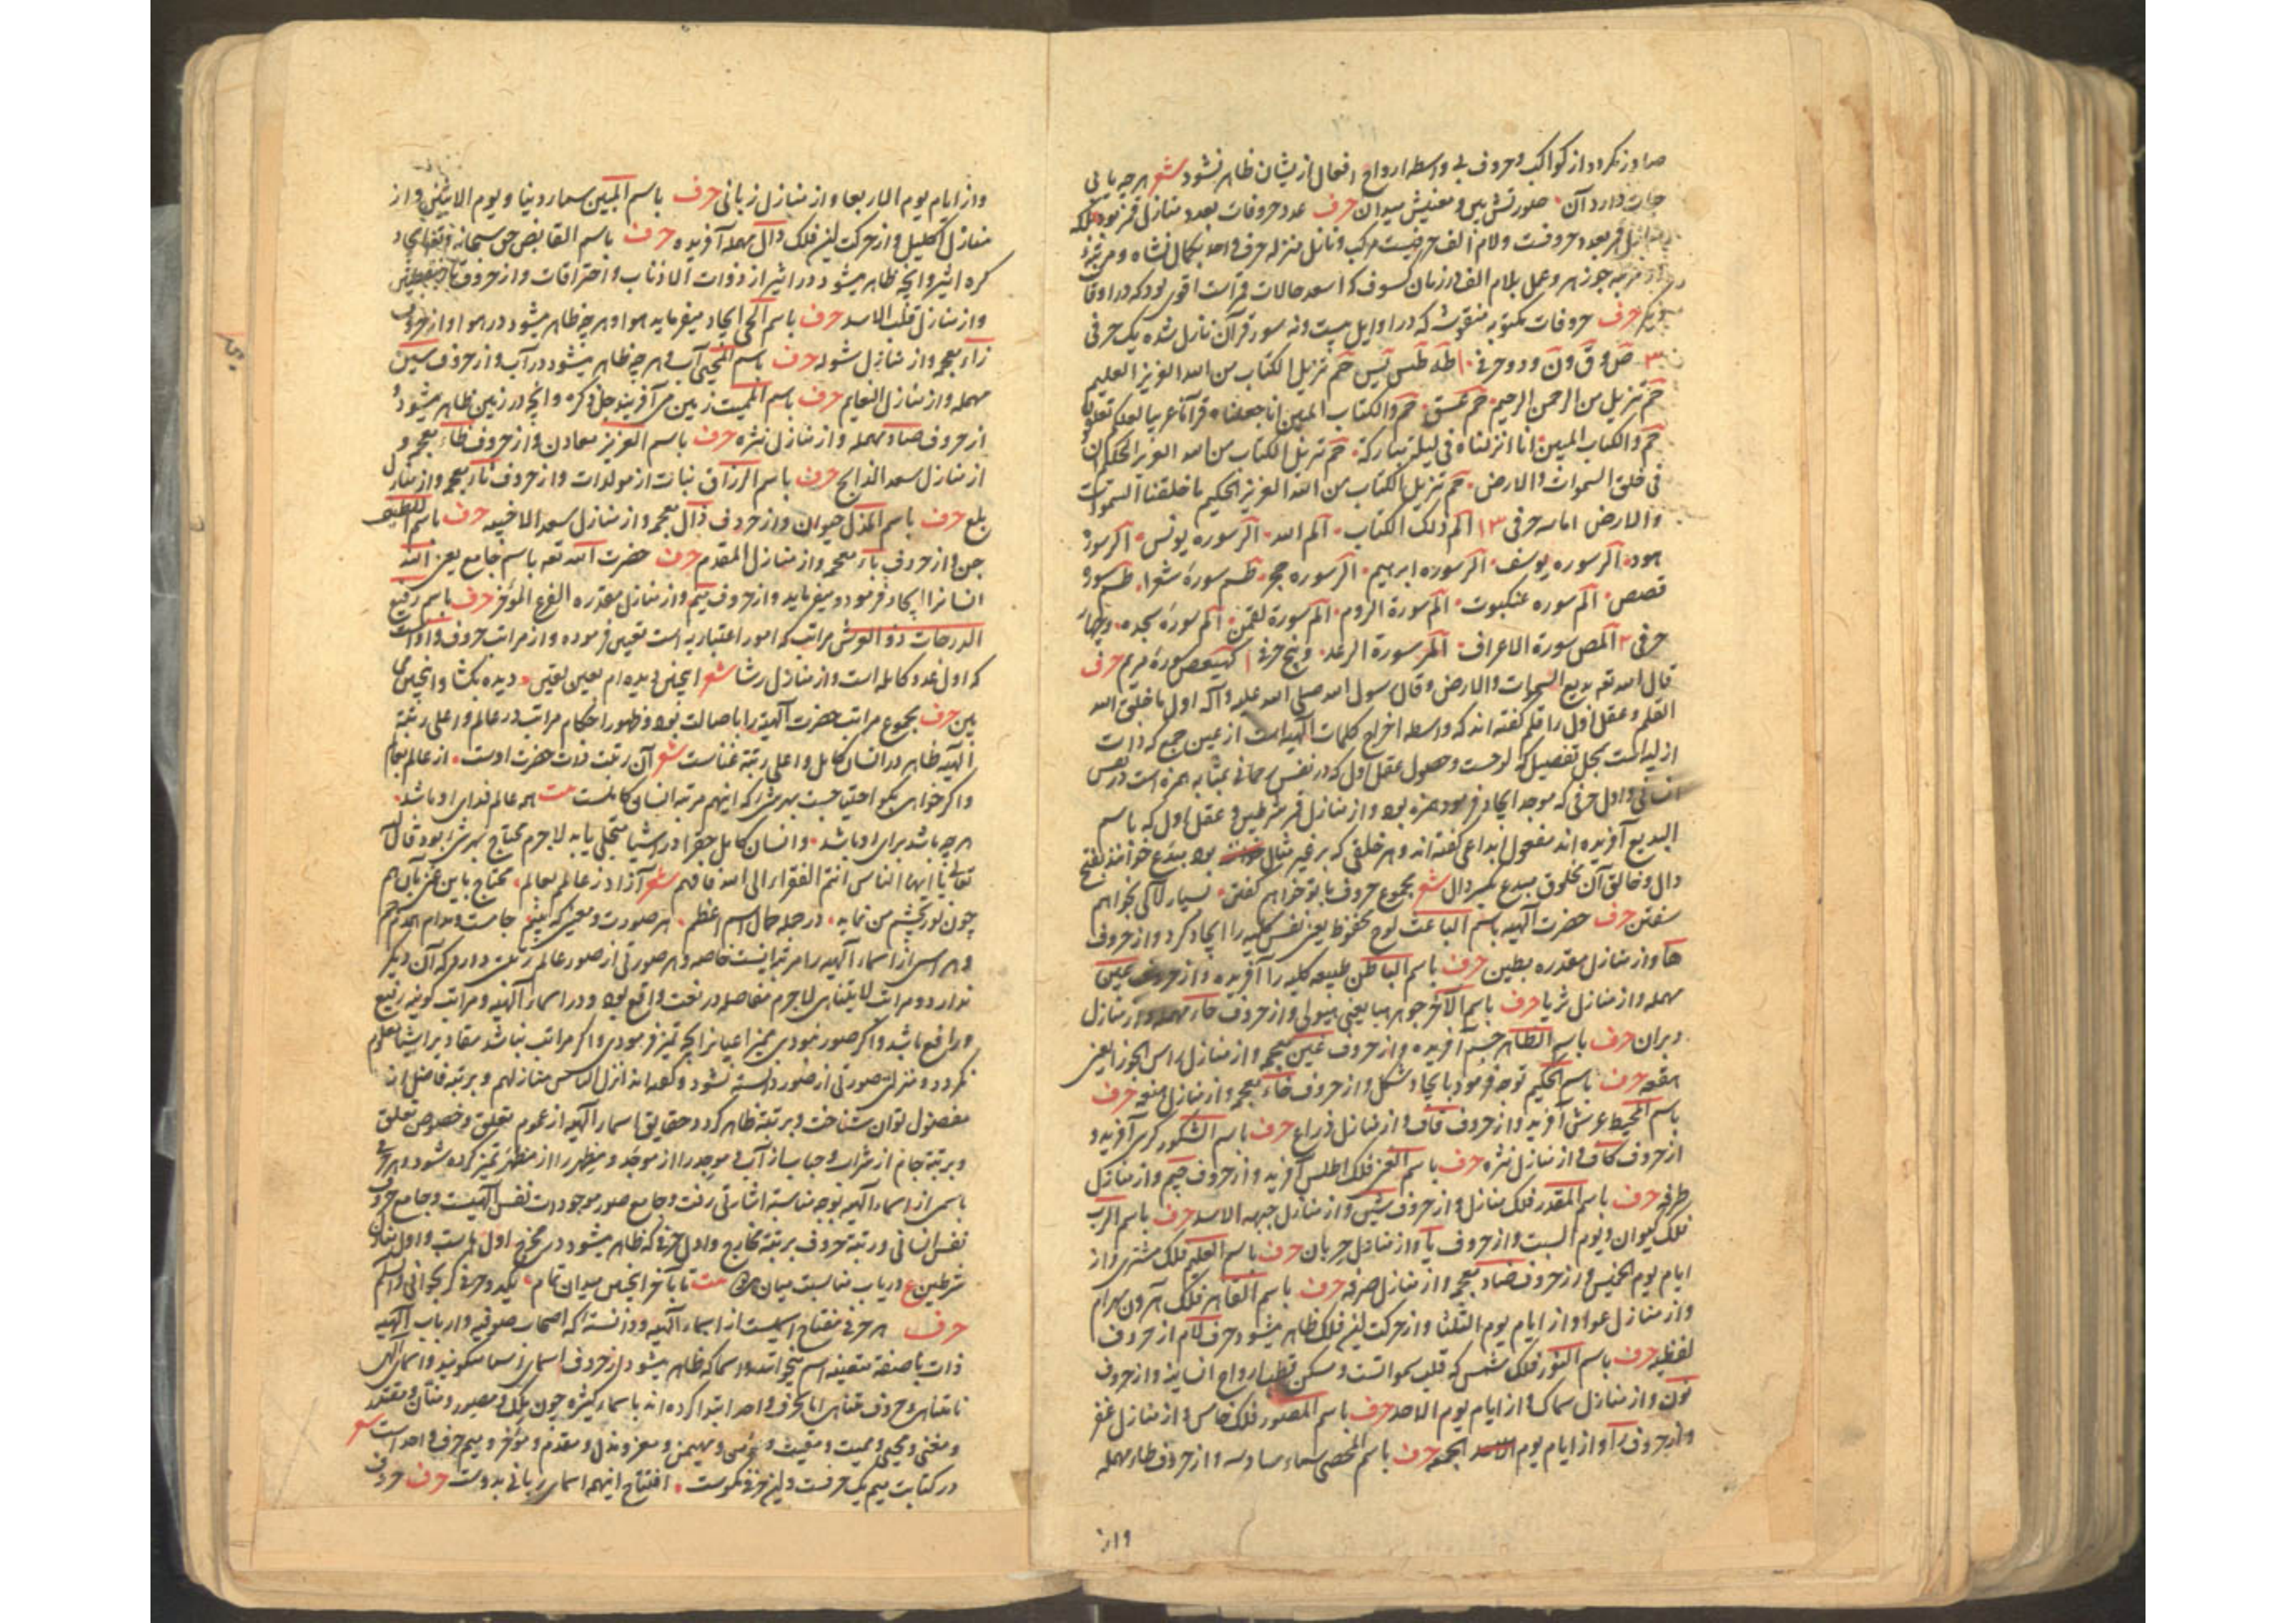 صادر نکردد از کواکب و حروف بی واسطه ارواح افعال از یشان ظاهر نشود شعر هر چه یابی
جان دارد آن صورتش بین و معنیش میدان حرف عدد حروفات بعدد منازل قمر بود بلکه
منازل قمر بعدد حروفست و لام الف حرفیست مرکب و نازل منزله حرفی واحد
جوزهر و عمل بلام الف در زمان کسوف که اسعد حالات قمرست اقوی بود که در اوقات
دیگر حرف حروفات مکتوبه منقوث که در اوایل بیست و نه سورة قرآن نازل شده یک حرفی
۳ ص و ق و ن و دو حرفی ۱۰ طه طس یس حم تنزیل الکتاب من الله العزیز العلیم
حم تنزیل من الرحمن الرحیم حم عسق حم والکتاب المبین انا جعلناه قرآنا عربیا لعلکم تعقلون
حم والکتاب المبین انا انزلناه فی لیلة مبارکة حم تنزیل الکتاب من الله العزیز الحکیم ان
فی خلق السموات والارض حم تنزیل الکتاب من الله العزیز الحکیم ما خلقنا السموات
والارض اما سه حرفی ۱۳ الم ذلک الکتاب الم الله الر سوره یونس الر سورة
هود الر سوره یوسف الر سوره ابرهیم الر سوره حجر طسم سورة شعرا طسم سورة
قصص الم سوره عنکبوت الم سورة الروم الم سورة لقمن الم سورة سجده و چهار
حرفی ۲ المص سورة الاعراف المر سورة الرعد و پنج حرفی ۱ کهیعص سورة مریم حرف
قال الله تعه بدیع السموات والارض و قال رسول الله صلی الله علیه و آله اول ما خلق الله
القلم و عقل اول را قلم کفته اند که واسطه اخراج کلمات الهیه است از عین جمع که ذات
ازلیه است بمحل تفصیل که لوحست و حصول عقل اول که در نفس رحمانی بمثابه همزه است در نفس
انسانی و اول حرفی که موجد ایجاد فرمود همزه بود و از منازل قمر شرطین و عقل اول که باسم
البدیع آفریده اند مفعول ابداعی کفته اند و هر خلقی که بر غیر مثال بود مبدع خوانند بفتح
دال و خالق آن مخلوق مبدع بکسر دال شعر مجموع حروف با تو خواهم کفتن بسیار لآلی بخواهم
سفتن حرف حضرت الهیه باسم الباعث لوح محفوظ یعنی نفس کلیه را ایجاد کرد و از حروف
ها و از منازل مقدره بطین حرف باسم الباطن طبیعه کلیه را آفریده و از حروف عین
مهمله و از منازل ثریا حرف باسم الآخر جوهر هبا یعنی هیولی و از حروف حاء مهمله و از منازل
دبران حرف باسم الظاهر جسم آفریده و از حروف غین معجمه و از منازل راس الجوزا یعنی
هقعه حرف باسم الحکیم توجه فرمود بایجاد شکل و از حروف خاء معجمه و از منازل هنعه حرف
باسم المحیط عرش آفرید و از حروف قاف و از منازل ذراع حرف باسم الشکور کرسی آفرید و
از حروف کاف و از منازل نثره حرف باسم الغنی فلک اطلس آفرید و از حروف جیم و از منازل
طرفه حرف باسم المقدر فلک منازل و از حروف شین و از منازل جبهه الاسد حرف باسم الرب
فلک کیوان و یوم السبت و از حروف یا و از منازل خرتان حرف باسم العلیم فلک مشتری و از
ایام یوم الخمیس و از حروف ضاد معجمه و از منازل صرفه حرف باسم القاهر فلک بهرام
و از منازل عوا و از ایام یوم الثلثا و از حرکت این فلک ظاهر میشود حرف لام از حروف
لفظیه حرف باسم النور فلک شمس که قلب سمواتست و مسکن قطب ارواح انسانیه و از حروف
نون و از منازل سماک و از ایام یوم الاحد حرف باسم المصور فلک خامس و از منازل غفر
و از حروف را و از ایام یوم الجمعه حرف باسم المحصی سماء سادسه و از حروف طاء مهمله
واز
واز ایام یوم الاربعا و از منازل زبانی حرف باسم المبین سماء دنیا و یوم الاثنین و از
منازل اکلیل و از حرکت این فلک دال مهمله آفریده حرف باسم القابض حق سبحانه و تعالی
کره اثیر و انچه ظاهر میشود در اثیر از ذوات الاذناب و احتراقات و از حروف تاء
و از منازل قلب الاسد حرف باسم الحی ایجاد میفرماید هوا و هر چه ظاهر میشود در هوا و از حروف
زاء معجمه و از منازل شوله حرف باسم المحیی آب و هر چه ظاهر میشود در آب و از حروف سین
مهمله و از منازل النعایم حرف باسم الممیت زمین می آفریند جل ذکره و انچه در زمین ظاهر میشود
از حروف صاد مهمله و از منازل حرف باسم العزیز معادن و از حروف ظاء معجمه و
از منازل سعد الذابح حرف باسم الرزاق نبات از مولدات و از حروف ثاء معجمه و از منازل
بلع حرف باسم المذل حیوان و از حروف ذال معجمه و از منازل سعد الاخبیه حرف باسم اللطیف
جن و از حروف باء معجمه و از منازل المقدم حرف حضرت الله تعه باسم جامع یعنی الله
انسانرا ایجاد فرموده میفرماید و از حروف میم و از منازل مقدره الفرغ المؤخر حرف باسم رفیع
الدرجات ذو العرش مراتب که امور اعتباریه است تعیین فرموده و از مراتب حروف واوست
که اول عدد کامله است و از منازل رشا شعر اینچنین دیده ام بعین یقین دیده بکشا و اینچنین می
بین حرف مجموع مراتب حضرت الهیه را باصالت بود و ظهور احکام مراتب در عالم و اعلی رتبة
الهیه ظاهر در انسان کامل و اعلی رتبة غناست شعر آن رتبت ذات حضرت اوست از عالم
و اکر خواهی بکو احتیاجست بهر شی که اینهم مرتبه انسان کاملست بیت همه عالم فدای او باشد
هر چه باشد برای او باشد و انسان کامل حقرا در اشیا متجلی یابد لاجرم محتاج بهر شی بود قال
تعالی یا ایها الناس انتم الفقراء الی الله فافهم شعر آزاد ز عالم بعالم محتاج باین عزیز
چون نور بچشم من نماید در جمله جمال اسم اعظم هر صورت و معنی که بینم جامست و مدام
و هر اسمی از اسماء الهیه را مرتبه ایست خاصه و هر صورتی از صور عالم رتبتی دارد که آن دیکر
ندارد و مراتب لا یتناهی لاجرم مفاصله در نعت واقع بود و در اسماء الهیه و مراتب کونیه رفیع
و ارفع باشد و اکر صور نمودی ممیز اعیانرا که تمیز فرمودی و اکر مراتب نباشد مقادیر اشیا معلوم
نکردد و منزلت صورتی از صور دانسته نشود و کفته اند انزل الناس منازلهم و برتبه فاضل از
مفضول توان شناخت و برتبة ظاهر کردد حقایق اسماء الهیه از عموم تعلق و خصوص تعلق
و برتبة جام از شراب و حباب از آب و موجد را از موجد و مظهر را از مظهر تمیز کرده شود و هر حرفی
باسمی از اسماء الهیه بوجه مناسبة اشارتی رفت و جامع صور موجودات نفس الهیست و جامع حروف
نفس انسانی و رتبة حروف برتبة مخارج و اول حرفی که ظاهر میشود در مخرج اول همزه است و اول منازل
شرطین ع دریاب مناسبت میان هر دو بیت تا بآخر اینچنین میدان تمام یکدو حرفی کر بخوانی والسلم
حرف هر حرفی مفتاح اسمیست از اسماء الهیه و دانسته که اصحاب صوفیه و ارباب الهیه
ذات با صفة متعینه اسم میخوانند و اسما که ظاهر میشود از حروف اسمای اسما میکویند و اسمای الهی
نامتناهی و حروف متناهی اما بحرفی واحد ابتدا کرده اند باسماء کثیره چون ملک و مصور و منان و مقتدر
و مغنی و محیی و ممیت و مقیت و مؤمن و مهیمن و معز و مذل و مقدم و مؤخر و میم حرفی واحد است شعر
در کتابت میم یک حرفست و این حرفی نکوست افتتاح اینهمه اسمای ربانی بدوست حرف حروف